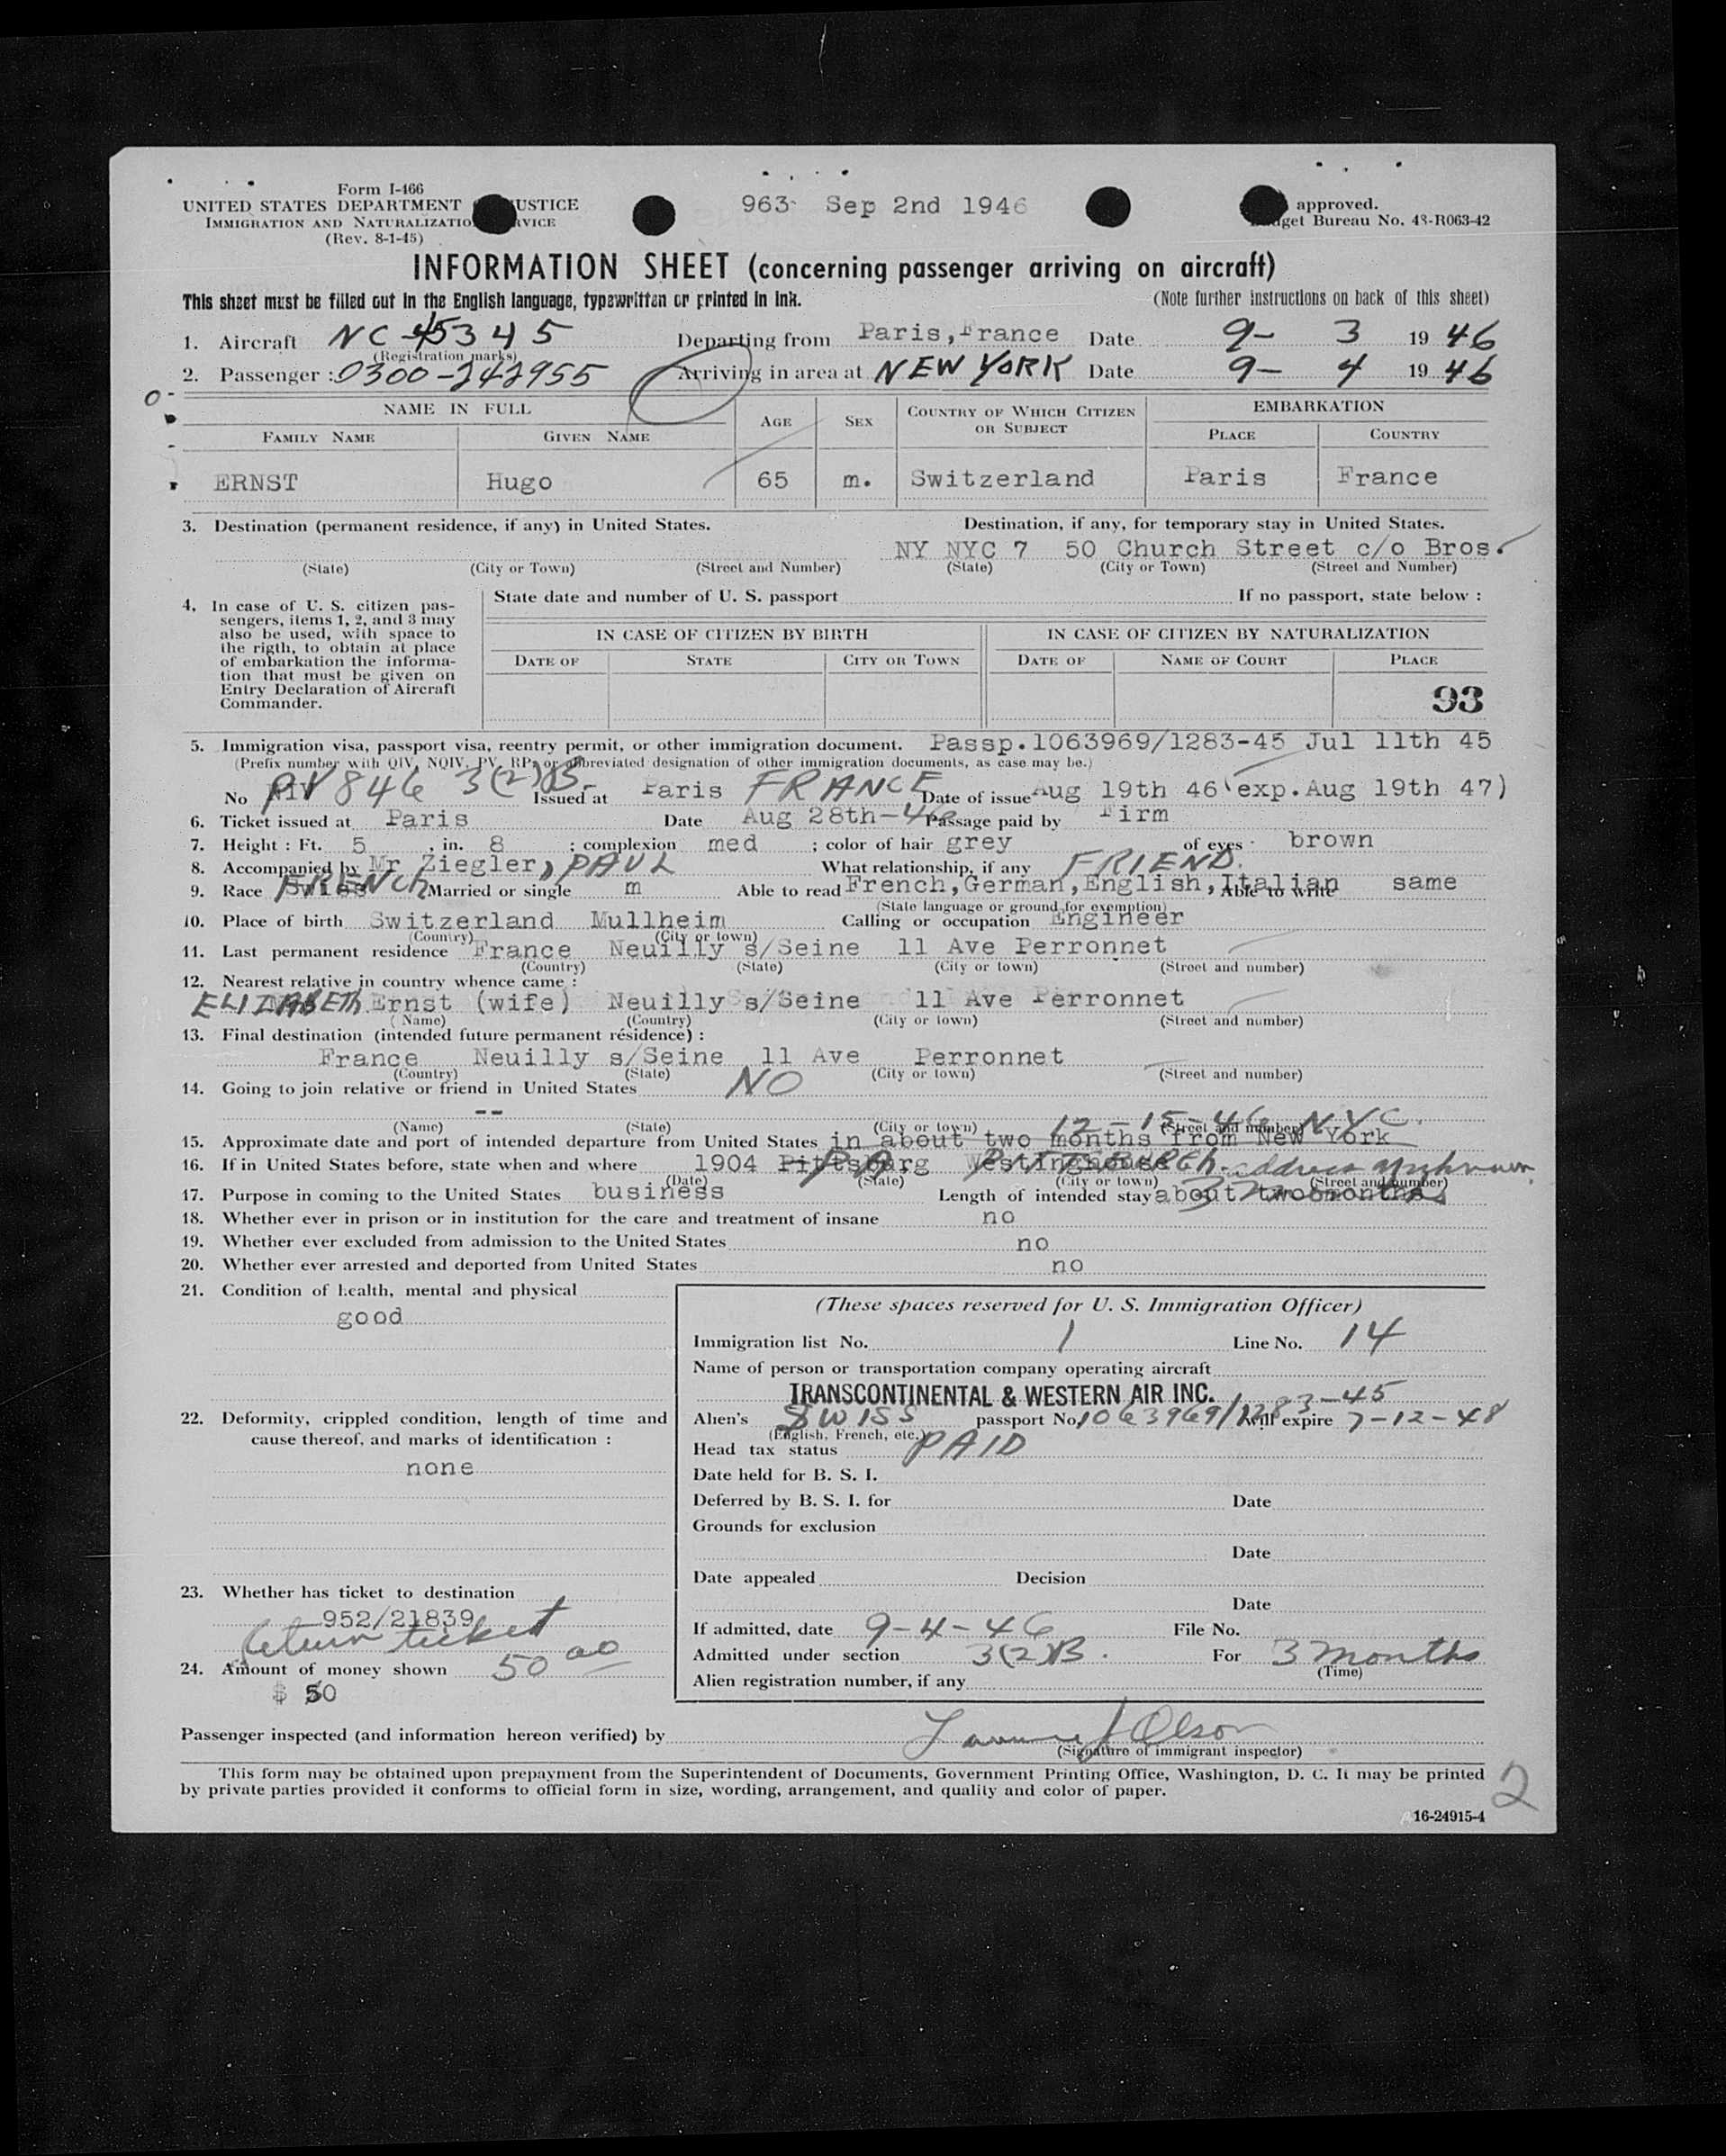 Form I-466
UNITED STATES DEPARTMENT USTICE
IMMIGRATION AND NATURALIZATIO RVICE
(Rev. 8-1-45)
963 Sep 2nd 1946
approved.
get Bureau No. 43-R063-42
INFORMATION SHEET (concerning passenger arriving on aircraft)
This sheet must be filled out in the English language, typewritten or printed in ink. (Note further instructions on back of this sheet)
1. Aircraft NC 45345 Departing from Paris, France Date 9- 3 19 46
(Registration marks)
2. Passenger : 0300-242955 Arriving in area at NEW YORK Date 9- 4 19 46
NAME IN FULL AGE SEX COUNTRY OF WHICH CITIZEN OR SUBJECT EMBARKATION
FAMILY NAME GIVEN NAME PLACE COUNTRY
ERNST Hugo 65 m. Switzerland Paris France
3. Destination (permanent residence, if any) in United States. Destination, if any, for temporary stay in United States.
NY NYC 7 50 Church Street c/o Bros.
(State) (City or Town) (Street and Number) (State) (City or Town) (Street and Number)
4. In case of U. S. citizen pas-
sengers, items 1, 2, and 3 may
also be used, with space to
the rigth, to obtain at place
of embarkation the informa-
tion that must be given on
Entry Declaration of Aircraft
Commander.
State date and number of U. S. passport If no passport, state below :
IN CASE OF CITIZEN BY BIRTH IN CASE OF CITIZEN BY NATURALIZATION
DATE OF STATE CITY OR TOWN DATE OF NAME OF COURT PLACE
93
5. Immigration visa, passport visa, reentry permit, or other immigration document. Passp.1063969/1283-45 Jul 11th 45
(Prefix number with QIV, NQIV, PV, RP, or abbreviated designation of other immigration documents, as case may be.)
No PV 846 3(2)B Issued at Paris FRANCE Date of issue Aug 19th 46 exp. Aug 19th 47)
6. Ticket issued at Paris Date Aug 28th-46 Passage paid by Firm
7. Height : Ft. 5 , in. 8 ; complexion med ; color of hair grey of eyes brown
8. Accompanied by Mr Ziegler, PAUL What relationship, if any FRIEND.
9. Race Swiss FRENCH Married or single m Able to read French, German, English, Italian Able to write same
(State language or ground for exemption)
10. Place of birth Switzerland Mullheim Calling or occupation Engineer
(Country) (City or town)
11. Last permanent residence France Neuilly s/Seine 11 Ave Perronnet
(Country) (State) (City or town) (Street and number)
12. Nearest relative in country whence came :
ELIZABETH Ernst (wife) Neuilly s/Seine 11 Ave Perronnet
(Name) (Country) (City or town) (Street and number)
13. Final destination (intended future permanent résidence) :
France Neuilly s/Seine 11 Ave Perronnet
(Country) (State) (City or town) (Street and number)
14. Going to join relative or friend in United States NO
--
(Name) (State) (City or town) (Street and number)
12-15-46 N.Y.C.
15. Approximate date and port of intended departure from United States in about two months from New York
16. If in United States before, state when and where 1904 Pittsburg PA. Westinghouse PITTSBURGH. address unknown
(Date) (State) (City or town) (Street and number)
17. Purpose in coming to the United States business Length of intended stay about two months 3 months
18. Whether ever in prison or in institution for the care and treatment of insane no
19. Whether ever excluded from admission to the United States no
20. Whether ever arrested and deported from United States no
21. Condition of health, mental and physical
good
22. Deformity, crippled condition, length of time and
cause thereof, and marks of identification :
none
23. Whether has ticket to destination
952/21839
return ticket
24. Amount of money shown 50 00
$ 50
(These spaces reserved for U. S. Immigration Officer)
Immigration list No. 1 Line No. 14
Name of person or transportation company operating aircraft
TRANSCONTINENTAL & WESTERN AIR INC.
Alien's SWISS passport No. 1063969/1283-45 Will expire 7-12-48
(English, French, etc.)
Head tax status PAID
Date held for B. S. I.
Deferred by B. S. I. for Date
Grounds for exclusion
Date
Date appealed Decision
Date
If admitted, date 9-4-46 File No.
Admitted under section 3(2)B. For 3 months
(Time)
Alien registration number, if any
Passenger inspected (and information hereon verified) by J Olson
(Signature of immigrant inspector)
This form may be obtained upon prepayment from the Superintendent of Documents, Government Printing Office, Washington, D. C. It may be printed
by private parties provided it conforms to official form in size, wording, arrangement, and quality and color of paper.
2
16-24915-4